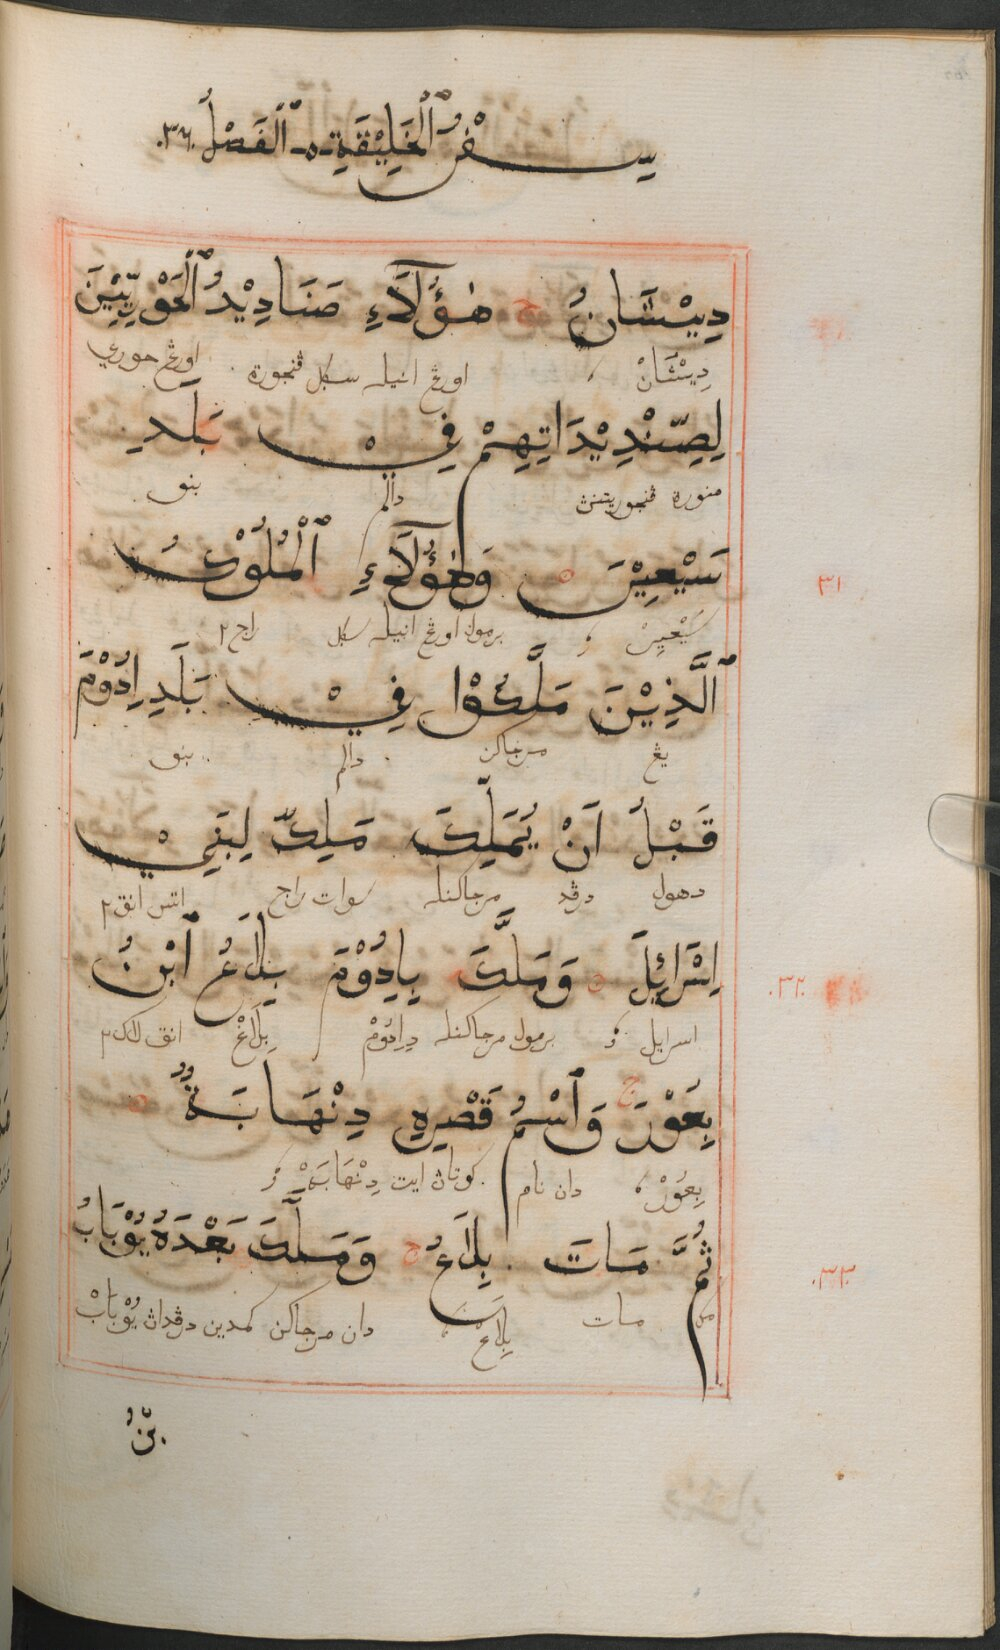 سِفْرُ ٱلْخَلِيْقَةِ ـ٥ـ ٱلْفَصْلُ .٣٦.
دِيْشَانُ ح هٰؤُلَآءِ صَنَادِيْدُ ٱلْحَوْرِيِّيْنَ
دِيْشَانْ ، اورڠ انيله سكل ڤنجورة اورڠ حوري
لِصِنْدِيْدَاتِهِمْ فِيْ بَلَدِ
منورة ڤنجوريتنڽ دالم بنو
سَيْعِيْرَ ٥ وَهٰؤُلَآءِ ٱلْمُلُوْكُ
٣١
سَيْعِيْرْ ؛ برمول اورڠ انيله سكل راج٢
ٱلَّذِيْنَ مَلَّكُوْا فِيْ بَلَدِ اِدُوْمَ
يڠ مرجاكن دالم بنو
قَبْلُ اَنْ يُمَلِّكَ مَلِكٌ لِبَنِيْ
دهول درڤد مرجاكنله سوات راج اتس انق٢
اِسْرَائِلَ ٥ وَمَلَّكَ بِاِدُوْمَ بِلَاعُ ٱبْنُ
.٣٢.
اسرايل ؛ برمول مرجاكنله دِاِدُوْمْ بِلَاعْ انق لاك٢
بِعَوْرَ ج وَٱسْمُ قَصْرِهِ دِنْهَابَةُ ٥
بِعَوْرْ ، دان نام كوتاڽ ايت دِنْهَابَهْ ؛
ثُمَّ مَاتَ بِلَاعُ ح وَمَلَّكَ بَعْدَهُ يُوْبَابُ
.٣٣.
مك مات بِلَاعْ ، دان مرجاكن كمدين درڤداڽ يُوْبَابْ
بْنُ